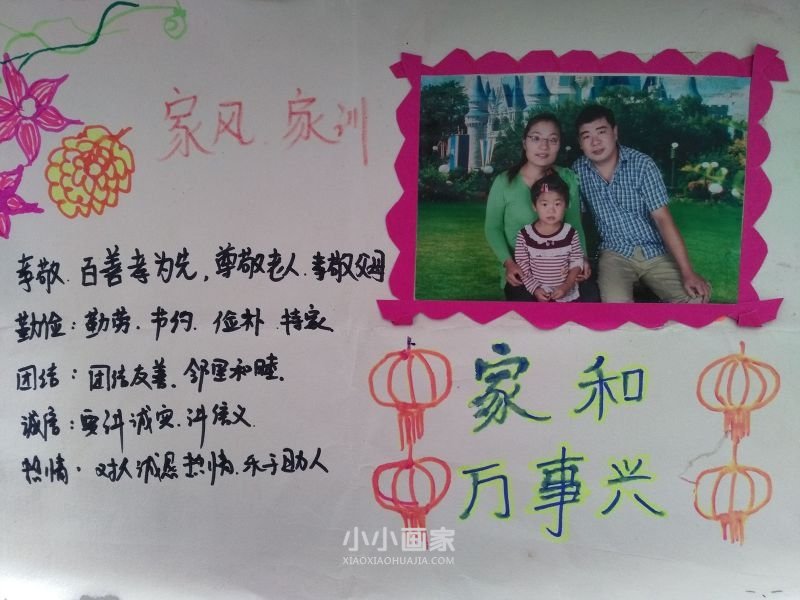 家风 家训
孝敬. 百善孝为先, 尊敬老人. 孝敬父母
勤俭: 勤劳. 节约. 俭朴. 持家
团结: 团结友善. 邻里和睦.
诚信: 要讲诚实. 讲信义.
热情. 对人诚恳热情. 乐于助人
家和
万事兴
小小画家
XIAOXIAOHUAJIA.COM